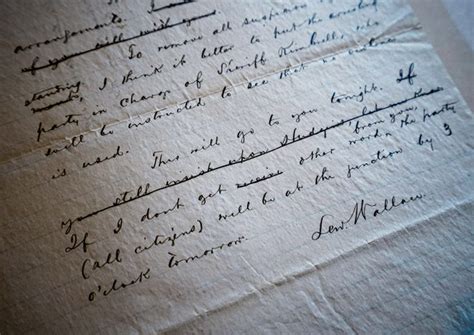 arrangements. I
To remove all suspicion of
standing, I think it better to put the arresting
party in charge of Sheriff Kimbrell, who
will be instructed to see that no violence
is used.
This will go to you tonight. If
you still insist upon Hudgens, let me know
If I dont get other word from you, the party
(all citizens) will be at the junction by 3
o'clock tomorrow.
Lew. Wallace.